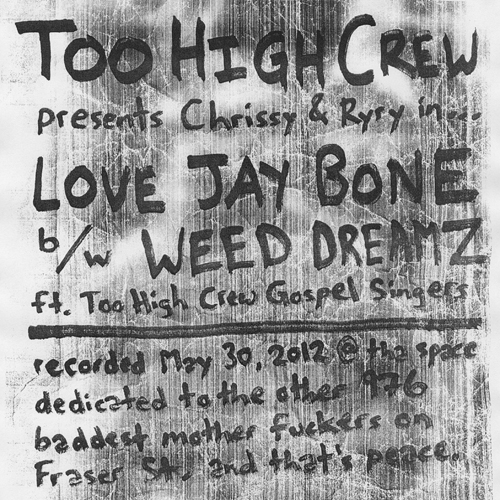 Too High Crew
presents Chrissy & Ryry in...
LOVE JAY BONE
b/w WEED DREAMZ
ft. Too High Crew Gospel Singers
recorded May 30, 2012 @ tha space
dedicated to the other 976
baddest mother fuckers on
Fraser St, and that's peace.